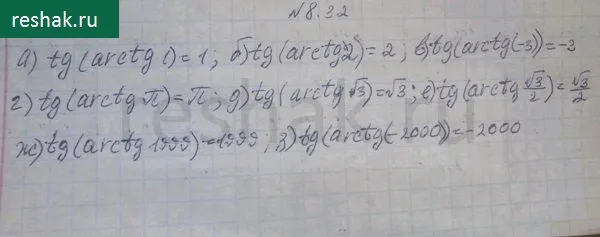 reshak.ru
№8.32
а) tg(arctg 1)=1; б) tg(arctg 2)=2; в) tg(arctg(-3))=-3
г) tg(arctg π)=π; д) tg(arctg √3)=√3; е) tg(arctg √3/2)=√3/2
ж) tg(arctg 1999)=1999; з) tg(arctg(-2000))=-2000
reshak.ru